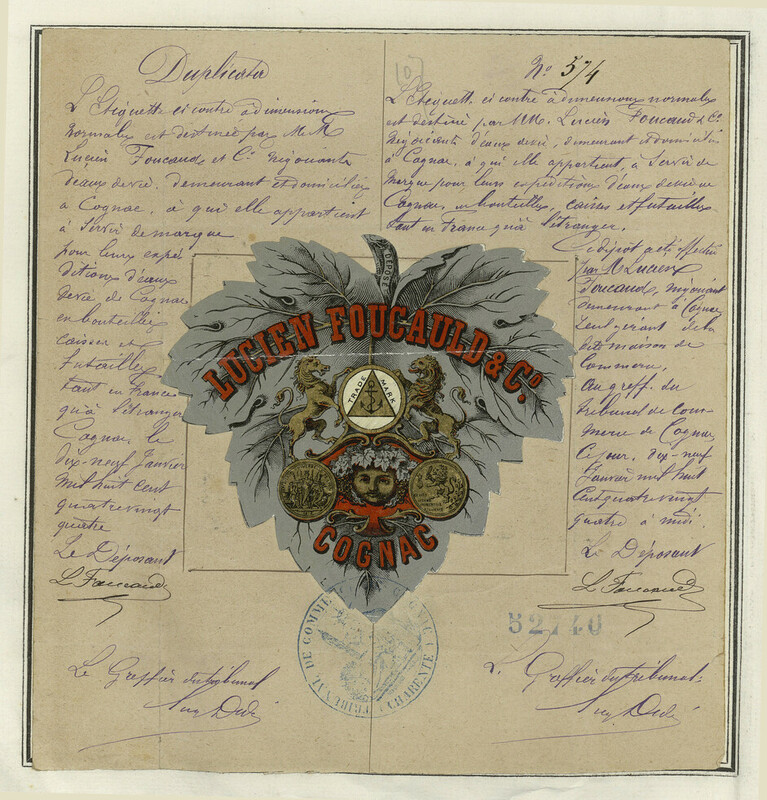 Duplicata
L'Etiquette ci contre à dimensions
normales est destinée par M.M
Lucien Foucauld et Cie négociants
d'eaux de vie, demeurant et domiciliés
à Cognac, à qui elle appartient
à servir de marque
pour leurs expé
ditions d'eaux
de vie, de Cognac
en bouteilles
caisses et
futailles
tant en France
qu'à l'étranger
Cognac, le
dix-neuf Janvier
mil huit cent
quatre vingt
quatre
Le Déposant
L Foucauld
Le Greffier du tribunal
No 574
L'Etiquette ci contre à dimensions normales
est destiné par MM. Lucien Foucauld & Cie
négociants d'eaux de vie, demeurant et domiciliés
à Cognac, à qui elle appartient, à servir de
marque pour leurs expéditions d'eaux de vie de
Cognac, en bouteilles, caisses et futailles
tant en France qu'à l'étranger.
Ce dépôt a été effectué
par M Lucien
Foucauld, négociant
demeurant à Cognac
seul gérant de la
dite maison de
Commerce,
au greffe du
tribunal de Com-
merce de Cognac
ce jour, dix-neuf
Janvier mil huit
cent quatre vingt
quatre à midi.
Le Déposant
L Foucauld
Le Greffier du tribunal
DÉPOSÉ
LUCIEN FOUCAULD & Co
TRADE MARK
COGNAC
TRIBUNAL DE COMMERCE
CHARENTE
52740